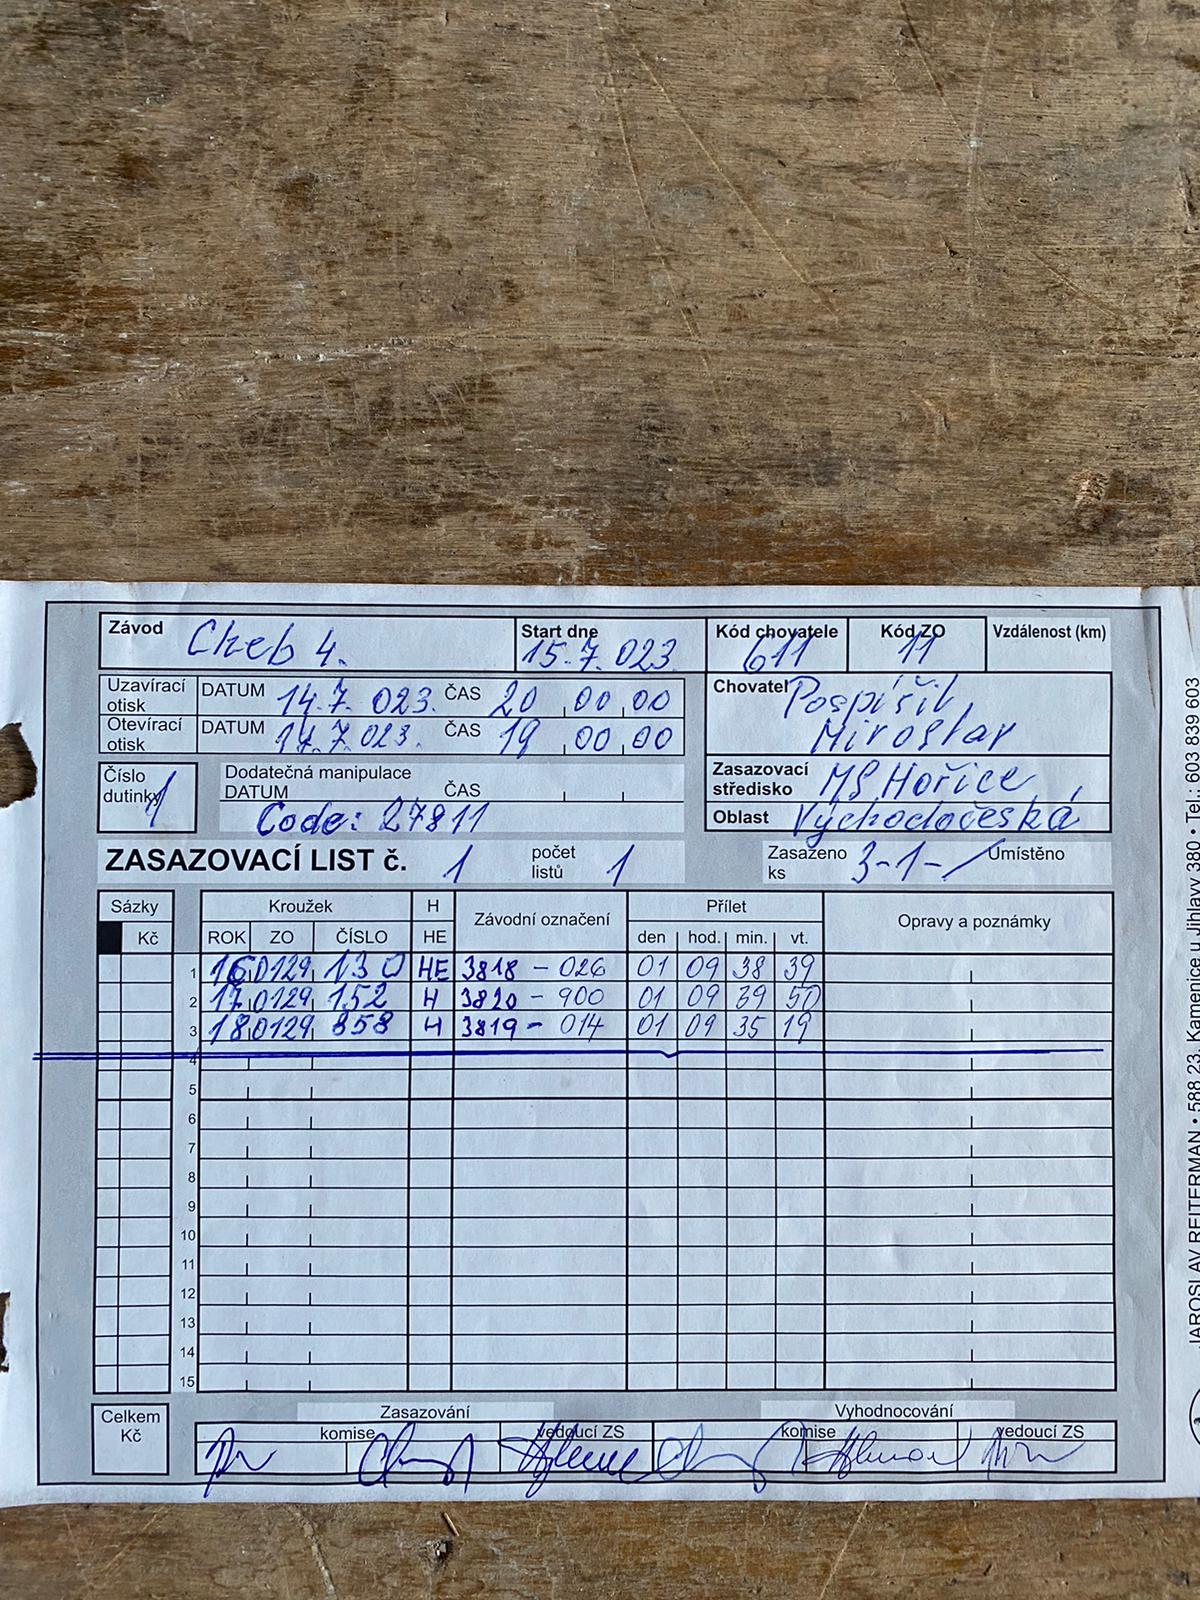 Závod Cheb 4. Start dne 15.7.023 Kód chovatele 611 Kód ZO 11 Vzdálenost (km)
Uzavírací otisk DATUM 14.7.023. ČAS 20 00 00
Otevírací otisk DATUM 17.7.023. ČAS 19 00 00
Chovatel Pospíšil
Miroslav
Číslo dutinky 1 Dodatečná manipulace
DATUM ČAS
Code: 27811
Zasazovací středisko MS Hořice
Oblast Východočeská
ZASAZOVACÍ LIST č. 1 počet listů 1 Zasazeno ks 3-1- Umístěno
Sázky Kroužek H Závodní označení Přílet Opravy a poznámky
Kč ROK ZO ČÍSLO HE den hod. min. vt.
1 16 0129 130 HE 3818 - 026 01 09 38 39
2 17 0129 152 H 3820 - 900 01 09 39 50
3 18 0129 858 H 3819 - 014 01 09 35 19
4
5
6
7
8
9
10
11
12
13
14
15
Celkem Kč Zasazování Vyhodnocování
komise vedoucí ZS komise vedoucí ZS
JAROSLAV REITERMAN • 588 23, Kamenice u Jihlavy 380 • Tel.: 603 839 603